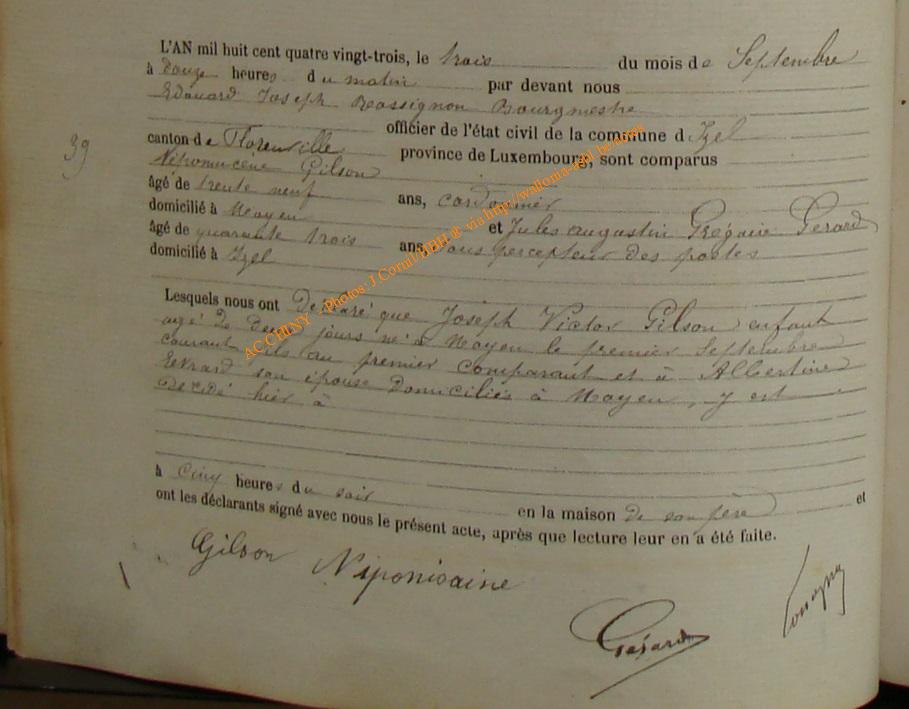 L'AN mil huit cent quatre vingt-trois, le trois du mois de Septembre
à Douze heures du matin par devant nous
Edouard Joseph Rossignon Bourgmestre
officier de l'état civil de la commune d Izel
39
canton de Florenville province de Luxembourg, sont comparus
Népomucène Gilson
âgé de trente neuf ans, cordonnier
domicilié à Moyen et Jules Augustin Grégoire Gerard
âgé de quarante trois ans, Sous percepteur des postes
domicilié à Izel
Lesquels nous ont Déclaré que Joseph Victor Gilson enfant
agé de deux jours né à Moyen le premier Septembre
courant fils du premier comparant et à Albertine
Evrard son épouse Domiciliés à Moyen, y est
Décédé hier à
à cinq heures du soir en la maison de son père et
ont les déclarants signé avec nous le présent acte, après que lecture leur en a été faite.
Gilson Niponisaine
Gérard
AC CHINY - Photos: J Cornil/ABH @ via http://wallonia-asbl.be/acces